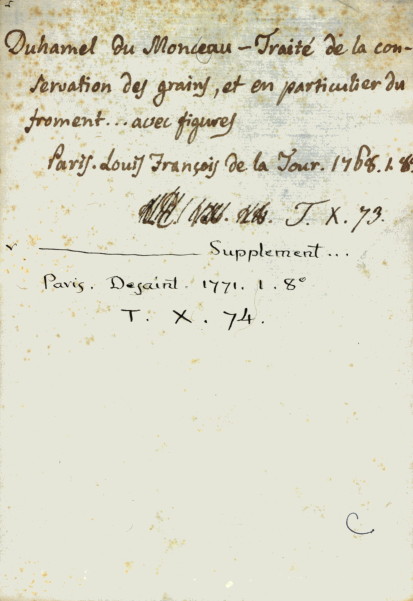 Duhamel du Monceau – Traité de la con-
servation des grains, et en particulier du
froment... avec figures
Paris. Louis François de la Tour. 1768. 1. 8º
T. X. 73.
Supplement...
Paris. Desaint. 1771. 1. 8º
T. X. 74.
C